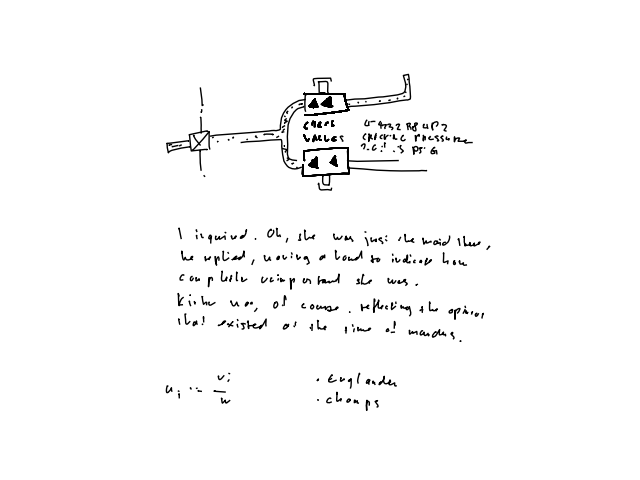 CHECK
VALVES
CRACKING PRESSURE
PSIG
I inquired. Oh, she was just the maid there,
he replied, waving a hand to indicate how
completely unimportant she was.
of course. reflecting the opinion
that existed at the time of
u_i = v_i / w
. Englander
. chomps